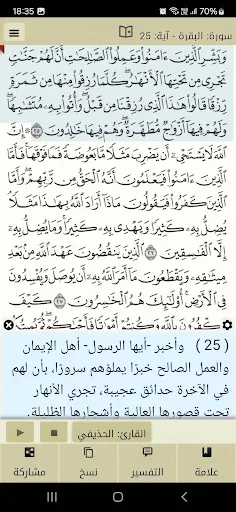 18:35
70%
سورة: البقرة - آية: 25
وَبَشِّرِ الَّذِينَ ءَامَنُوا وَعَمِلُوا الصَّالِحَاتِ أَنَّ لَهُمْ جَنَّاتٍ
تَجْرِي مِن تَحْتِهَا الْأَنْهَارُ كُلَّمَا رُزِقُوا مِنْهَا مِن ثَمَرَةٍ
رِّزْقًا قَالُوا هَٰذَا الَّذِي رُزِقْنَا مِن قَبْلُ وَأُتُوا بِهِ مُتَشَابِهًا
وَلَهُمْ فِيهَا أَزْوَاجٌ مُّطَهَّرَةٌ وَهُمْ فِيهَا خَالِدُونَ ٢٥ إِنَّ
اللَّهَ لَا يَسْتَحْيِي أَن يَضْرِبَ مَثَلًا مَّا بَعُوضَةً فَمَا فَوْقَهَا فَأَمَّا
الَّذِينَ ءَامَنُوا فَيَعْلَمُونَ أَنَّهُ الْحَقُّ مِن رَّبِّهِمْ وَأَمَّا
الَّذِينَ كَفَرُوا فَيَقُولُونَ مَاذَا أَرَادَ اللَّهُ بِهَٰذَا مَثَلًا
يُضِلُّ بِهِ كَثِيرًا وَيَهْدِي بِهِ كَثِيرًا وَمَا يُضِلُّ بِهِ
إِلَّا الْفَاسِقِينَ ٢٦ الَّذِينَ يَنقُضُونَ عَهْدَ اللَّهِ مِن بَعْدِ
مِيثَاقِهِ وَيَقْطَعُونَ مَا أَمَرَ اللَّهُ بِهِ أَن يُوصَلَ وَيُفْسِدُونَ
فِي الْأَرْضِ أُولَٰئِكَ هُمُ الْخَاسِرُونَ ٢٧ كَيْفَ
تَكْفُرُونَ بِاللَّهِ وَكُنتُمْ أَمْوَاتًا فَأَحْيَاكُمْ ثُمَّ يُمِيتُكُمْ
( 25 ) وأخبر -أيها الرسول- أهل الإيمان
والعمل الصالح خبرًا يملؤهم سرورًا، بأن لهم
في الآخرة حدائق عجيبة، تجري الأنهار
تحت قصورها العالية وأشجارها الظليلة.
القارئ: الحذيفي
علامة
التفسير
نسخ
مشاركة